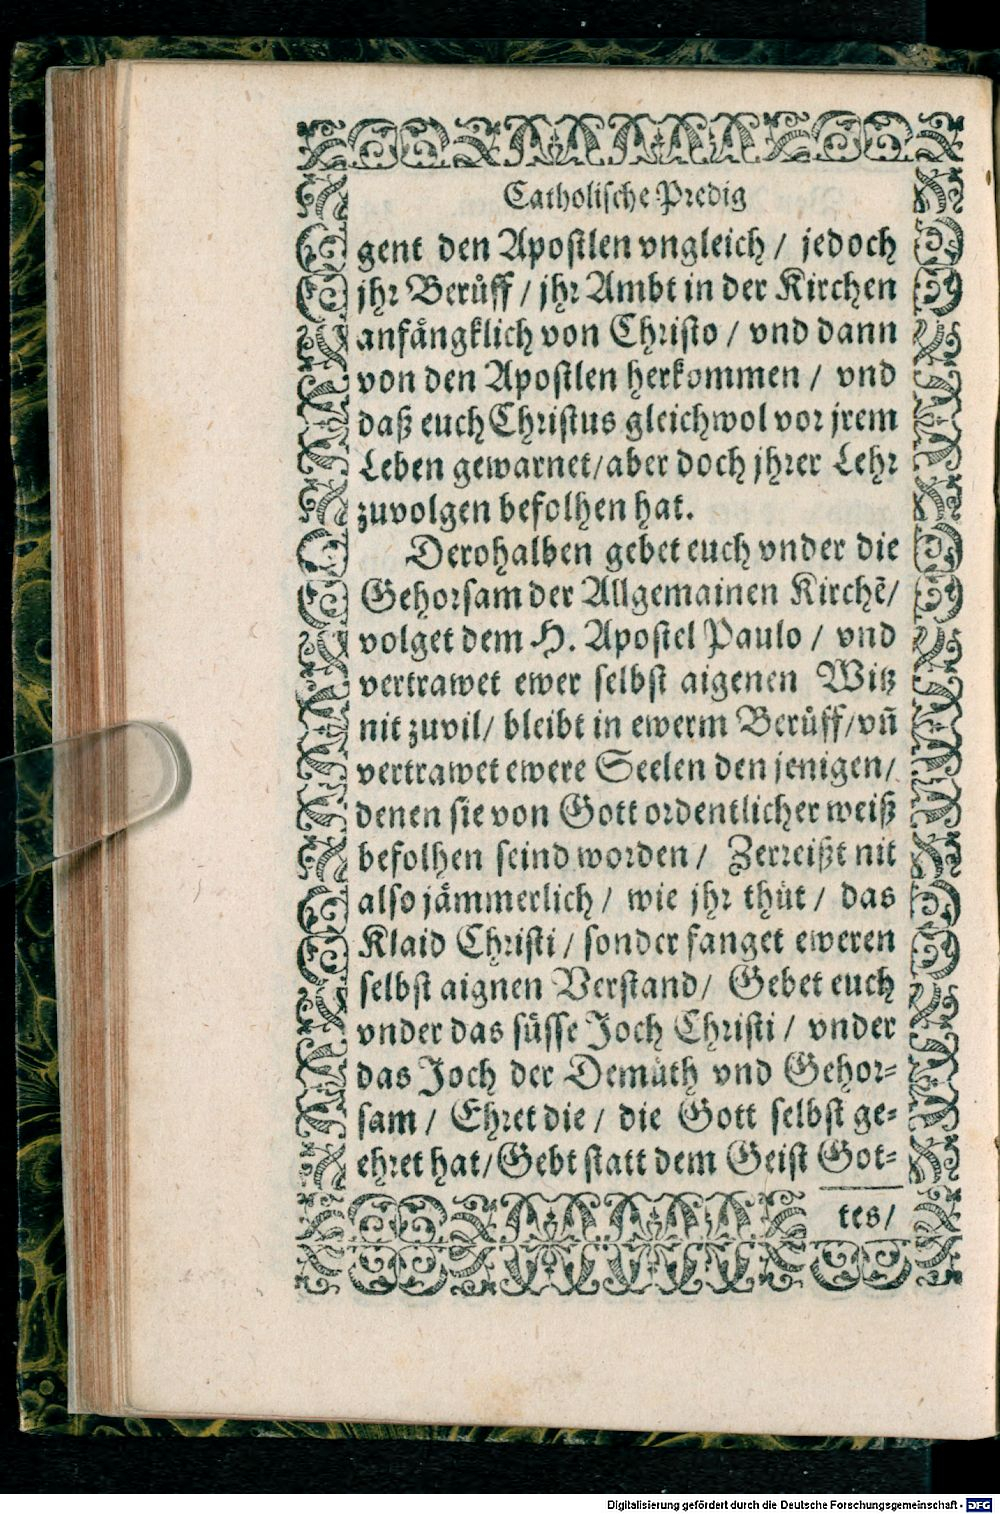 Catholische Predig
gent den Apostlen vngleich / jedoch
jhr Berůff / jhr Ambt in der Kirchen
anfängklich von Christo / vnd dann
von den Apostlen herkommen / vnd
daß euch Christus gleichwol vor jrem
Leben gewarnet/aber doch jhrer Lehr
zuvolgen befolhen hat.
Derohalben gebet euch vnder die
Gehorsam der Allgemainen Kirchẽ/
volget dem H. Apostel Paulo / vnd
vertrawet ewer selbst aigenen Witz
nit zuvil/ bleibt in ewerm Berůff/vñ
vertrawet ewere Seelen den jenigen/
denen sie von Gott ordentlicher weiß
befolhen seind worden / Zerreißt nit
also jämmerlich / wie jhr thůt / das
Klaid Christi / sonder fanget eweren
selbst aignen Verstand/ Gebet euch
vnder das süsse Joch Christi / vnder
das Joch der Demůth vnd Gehor-
sam / Ehret die / die Gott selbst ge-
ehret hat/Gebt statt dem Geist Got-
tes/
Digitalisierung gefördert durch die Deutsche Forschungsgemeinschaft - DFG